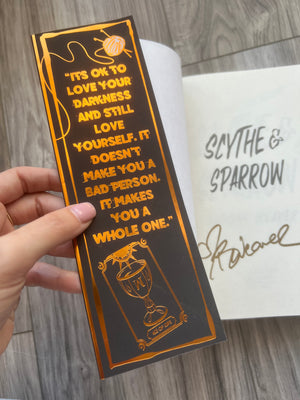 "IT'S OK TO
LOVE YOUR
DARKNESS
AND STILL
LOVE
YOURSELF. IT
DOESN'T
MAKE YOU A
BAD PERSON.
IT MAKES
YOU A
WHOLE ONE."
SCYTHE &
SPARROW